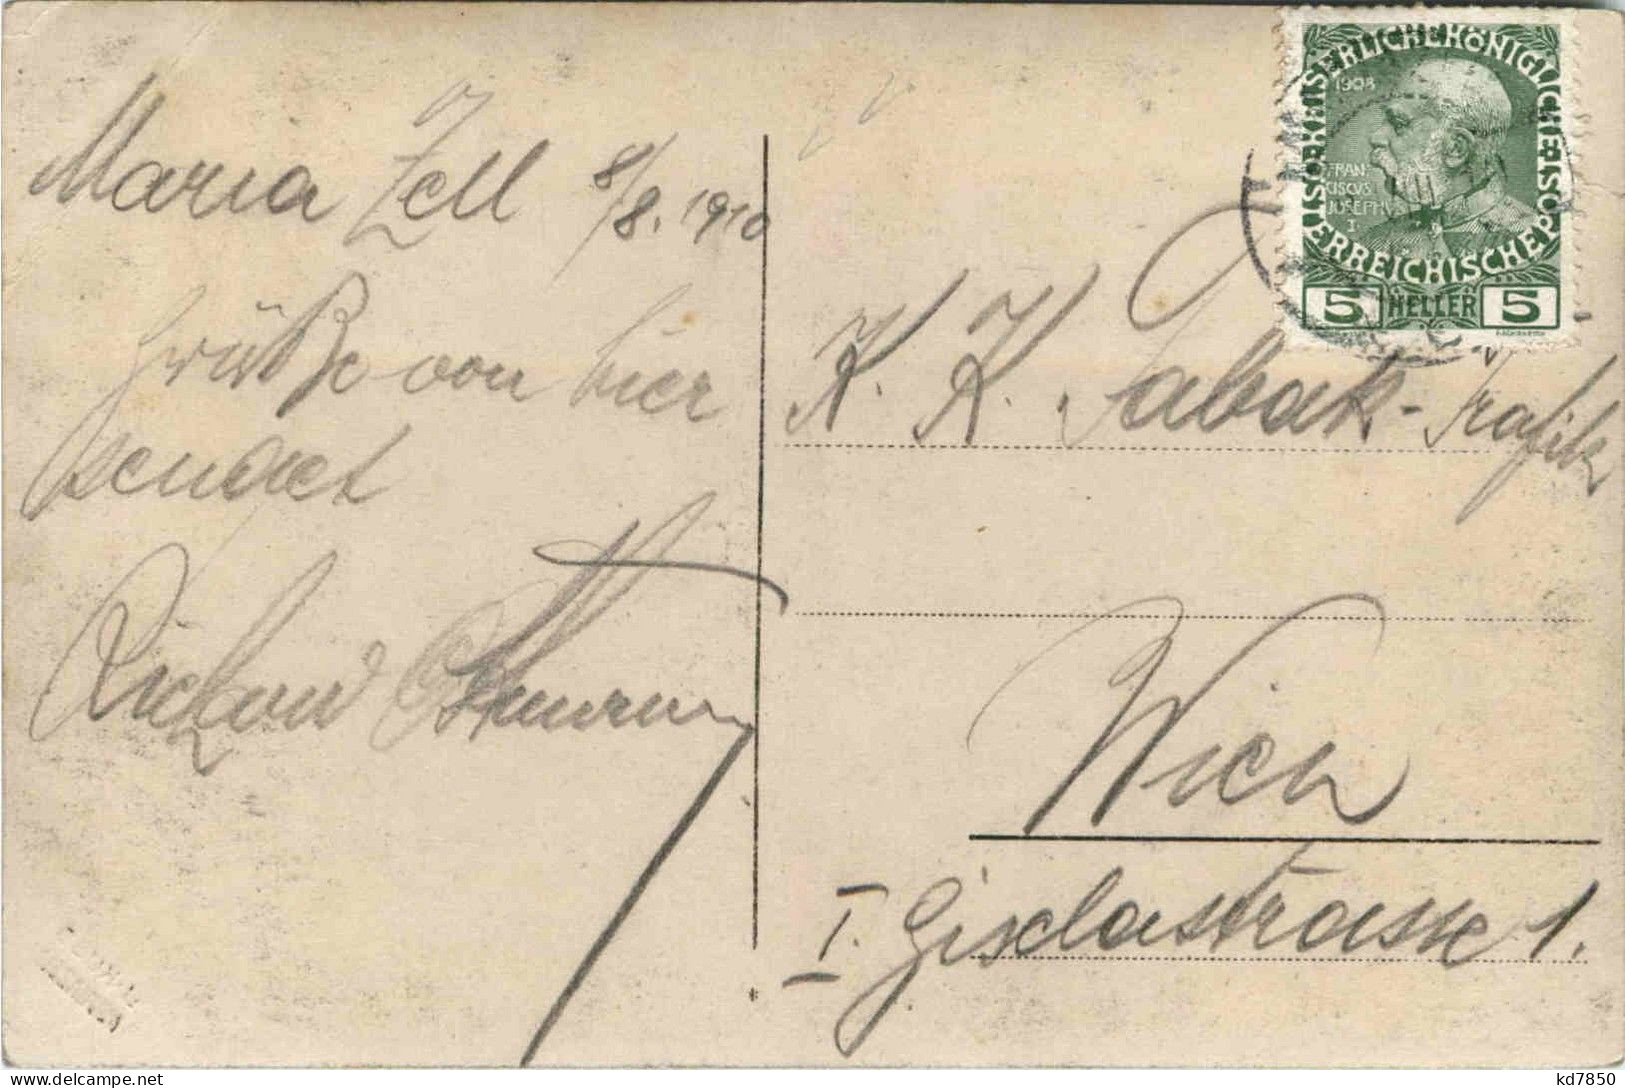 Maria Zell 8/8. 1910
Grüße von hier
sendet
Richard
KAISERLICHE KÖNIGLICHE ÖSTERREICHISCHE POST
1908
FRAN
CISCUS
JOSEPHVS
I
5 HELLER 5
K. K. Tabak-Trafik
Wien
I. Giselastrasse 1.
kd7850